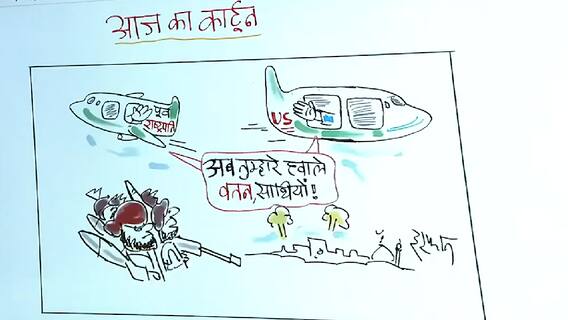 आज का कार्टून
पूर्व
राष्ट्रपति
US
अब तुम्हारे हवाले
वतन, साथियों!
इरफ़ान